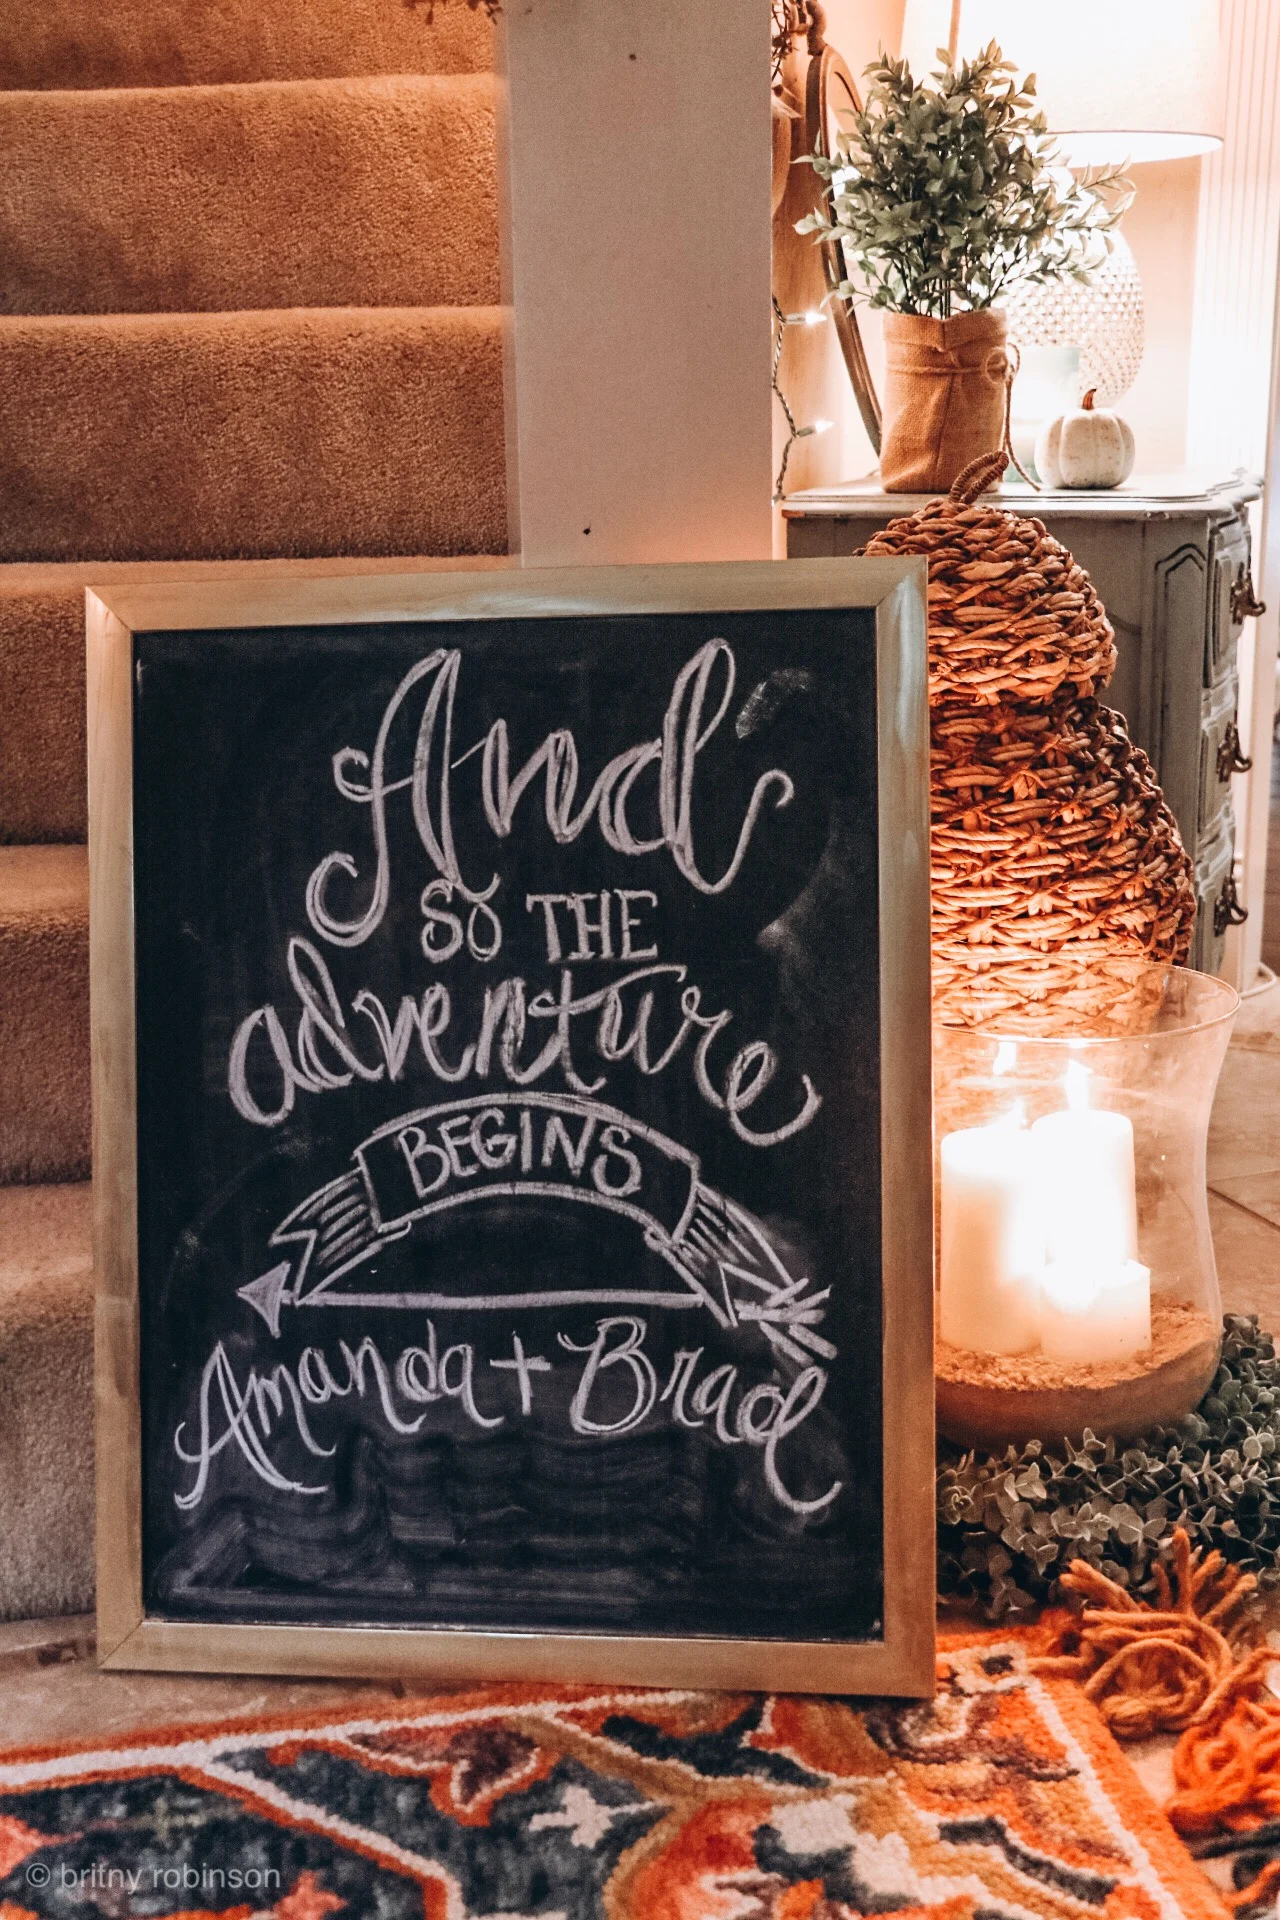 And
SO THE
adventure
BEGINS
Amanda + Brad
© britny robinson